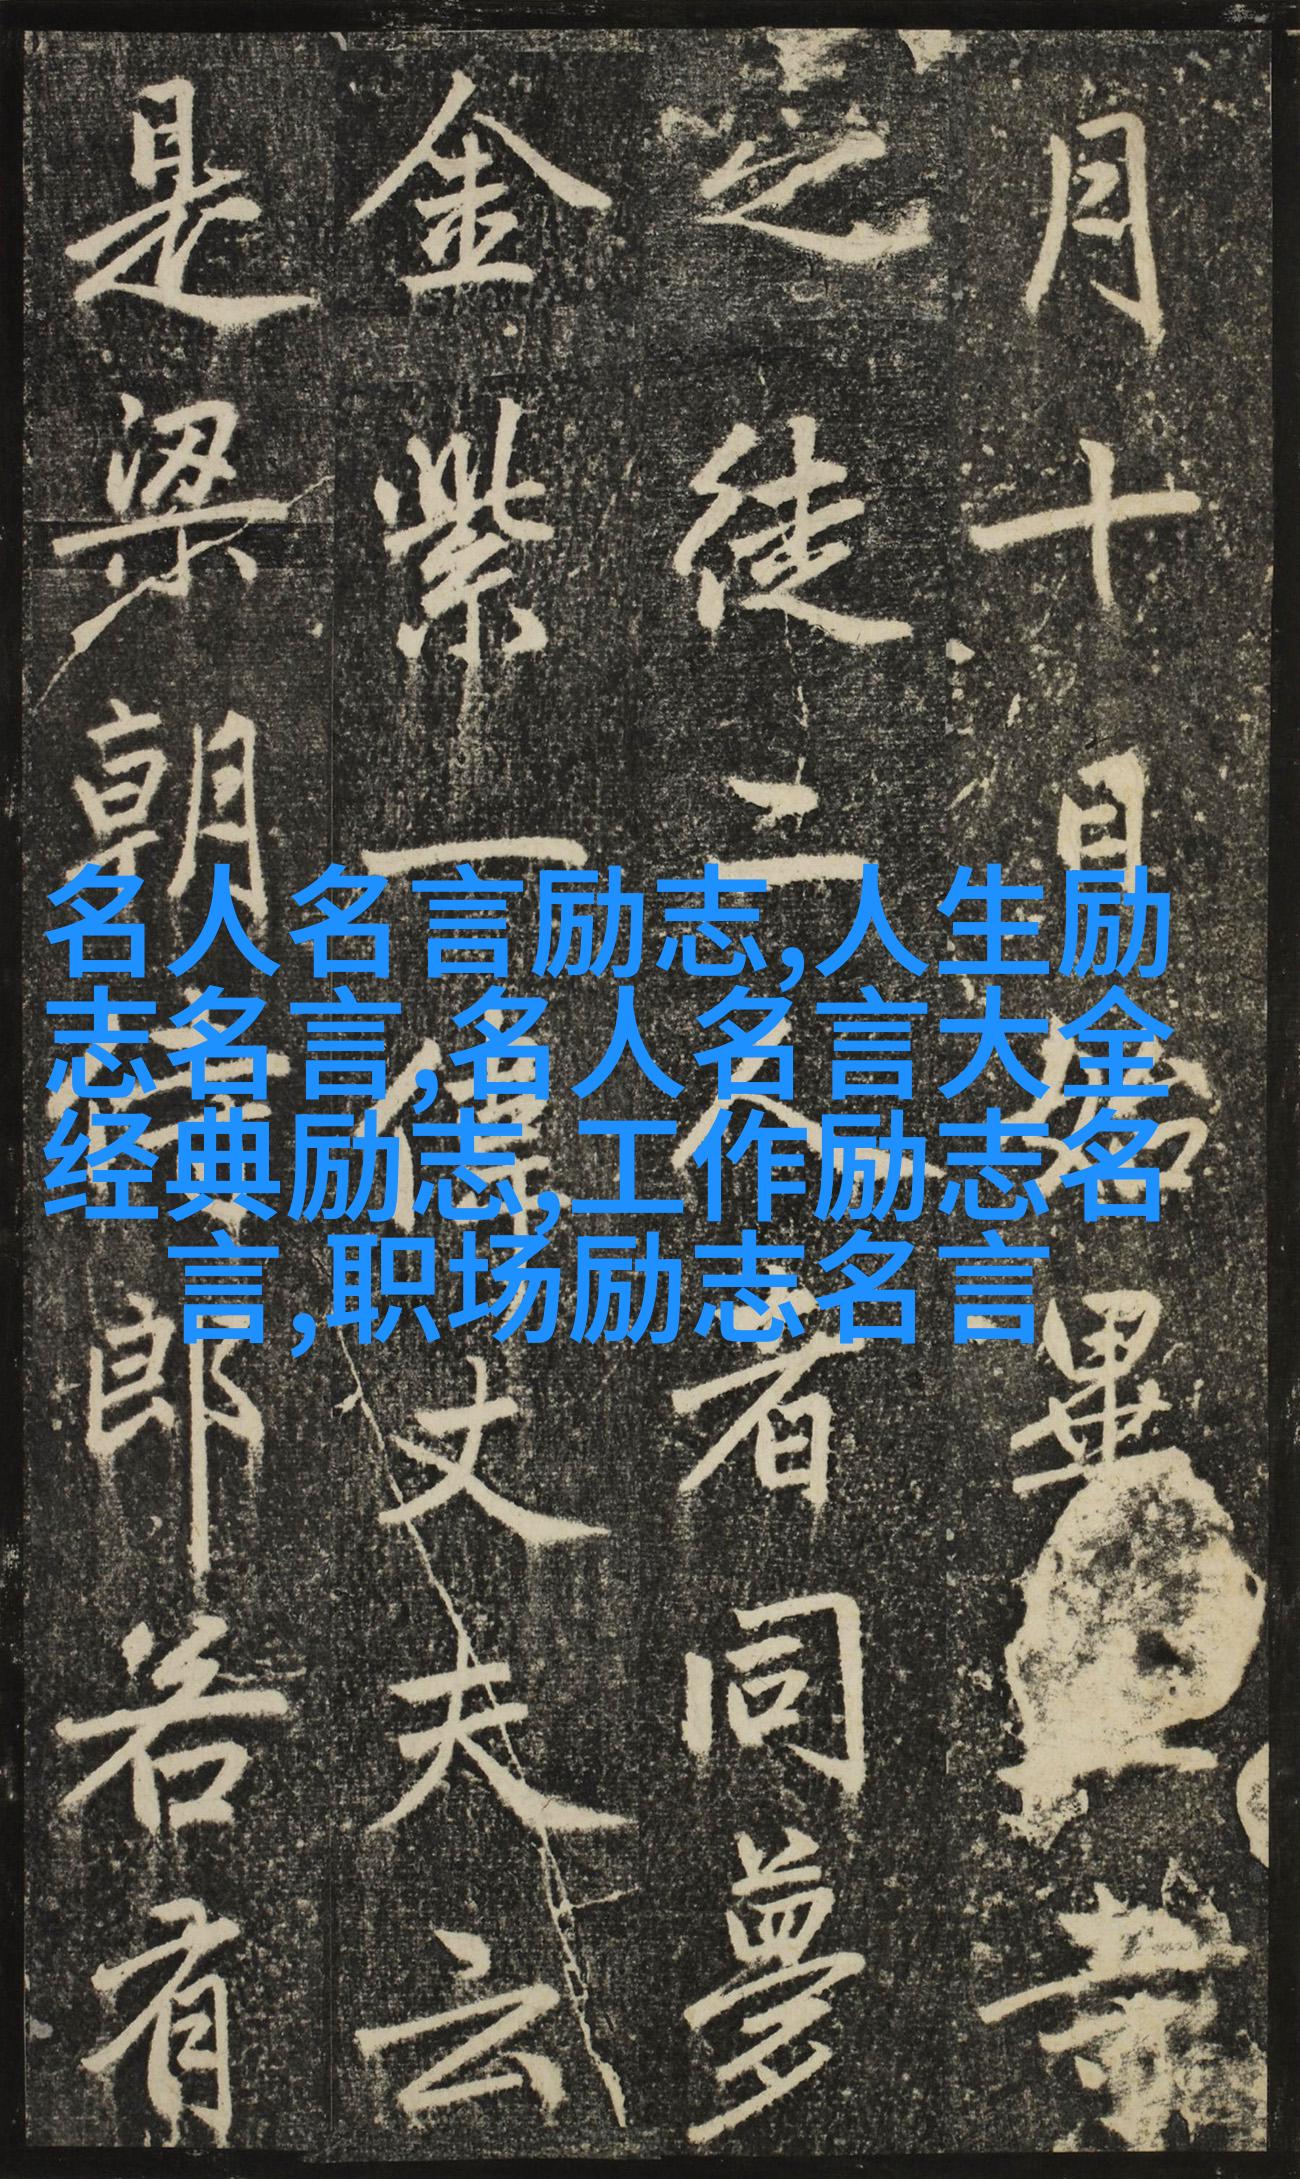 月十日畢
之徒二人者同夢
金紫一偉丈夫云
是梁朝郎若有
名人名言励志,人生励
志名言,名人名言大全
经典励志,工作励志名
言,职场励志名言